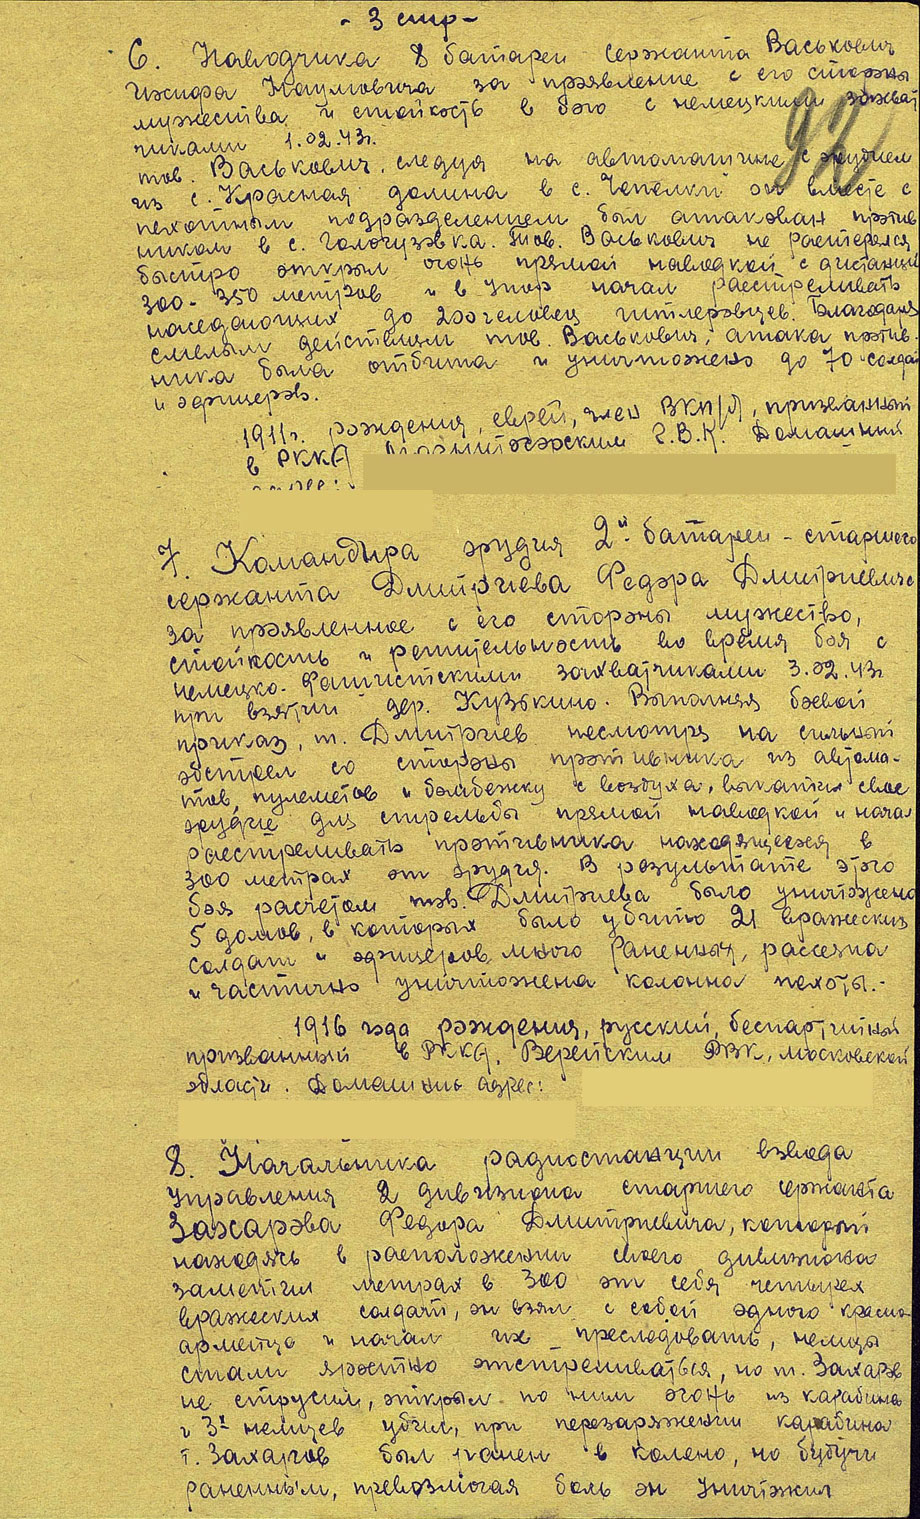 - 3 стр -
92
6. Наводчика 8 батареи сержанта Васькович
Иосифа Наумовича за проявление с его стороны
мужества и стойкость в бою с немецкими захват
чиками 1.02.43г.
тов. Васькович, следуя на автомашине с орудием
из с. Красная долина в с. Чепелки он вместе с
пехотным подразделением был атакован против
ником в с. Голочузовка. Тов. Васькович не растерялся
быстро открыл огонь прямой наводкой с дистанции
300-350 метров и в упор начал расстреливать
наседающих до 200 человец гитлеровцев. Благодаря
смелым действиям тов. Васькович, атака против-
ника была отбита и уничтожено до 70 солдат
и офицеров.
1911г. рождения, еврей, член ВКП/б, призванный
в РККА Магнитогорским Г.В.К. Домашний
адрес:
7. Командира орудия 2й батареи - старшего
сержанта Дмитриева Федора Дмитриевича
за проявленное с его стороны мужество,
стойкость и решительность во время боя с
немецко-фашистскими захватчиками 3.02.43г
при взятии дер. Кузькино. Выполняя боевой
приказ, т. Дмитриев несмотря на сильный
обстрел со стороны противника из автома-
тов, пулеметов и бомбежку с воздуха, выкатил свое
орудие для стрельбы прямой наводкой и начал
расстреливать противника находящегося в
300 метрах от орудия. В результате этого
боя расчетом тов. Дмитриева было уничтожено
5 домов, в которых было убито 21 вражеских
солдат и офицеров, много раненных, рассеяна
и частично уничтожена колонна пехоты.-
1916 года рождения, русский, беспартийный
призванный в РККА, Верейским РВК, московской
области. Домашний адрес:
8. Начальника радиостанции взвода
управления 2 дивизиона старшего сержанта
Захарова Федора Дмитриевича, который
находясь в расположении своего дивизиона
заметил метрах в 300 от себя четырех
вражеских солдат, он взял с собой одного красно-
армейца и начал их преследовать, немцы
стали яростно отстреливаться, но т. Захаров
не струсил, открыл по ним огонь из карабина
и 3х немцев убил, при перезаряжении карабина
т. Захаров был ранен в колено, но будучи
раненным, превозмогая боль он уничтожил